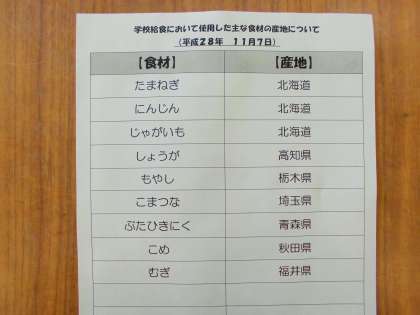 学校給食において使用した主な食材の産地について
(平成28年 11月7日)
【食材】 【産地】
たまねぎ 北海道
にんじん 北海道
じゃがいも 北海道
しょうが 高知県
もやし 栃木県
こまつな 埼玉県
ぶたひきにく 青森県
こめ 秋田県
むぎ 福井県